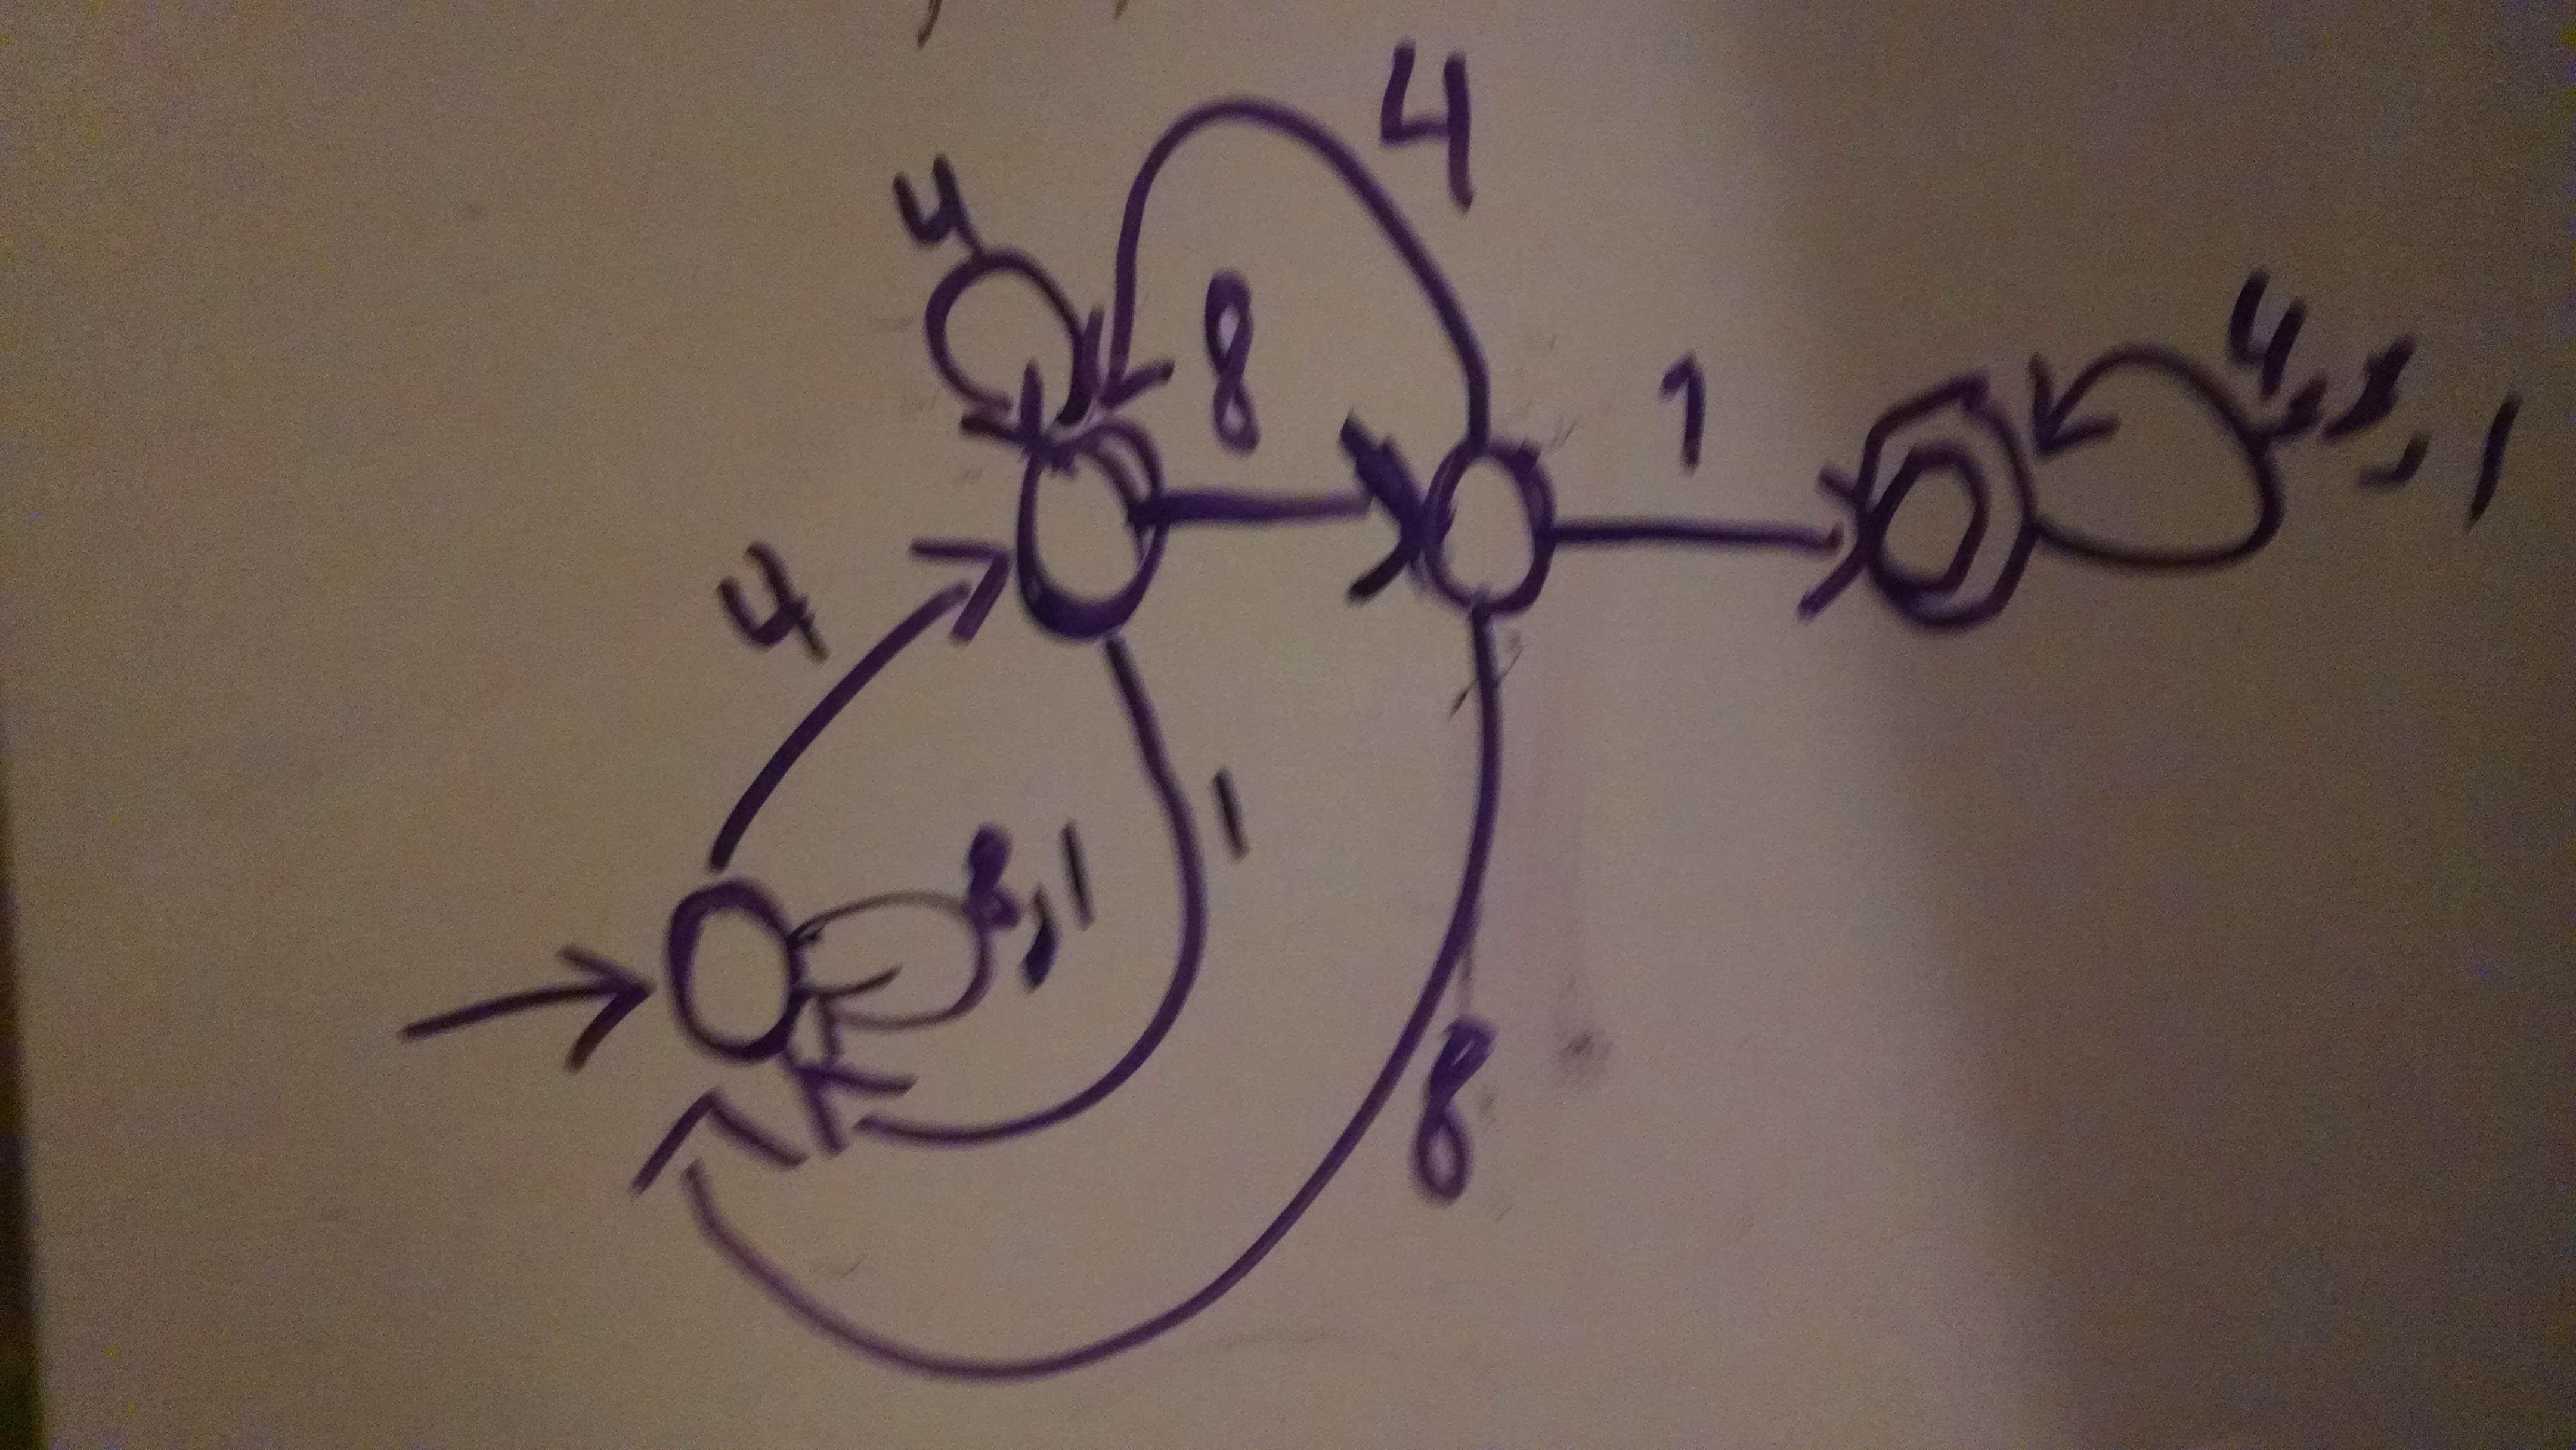 4
4
8
1
4,8,1
4
1
8,1
8